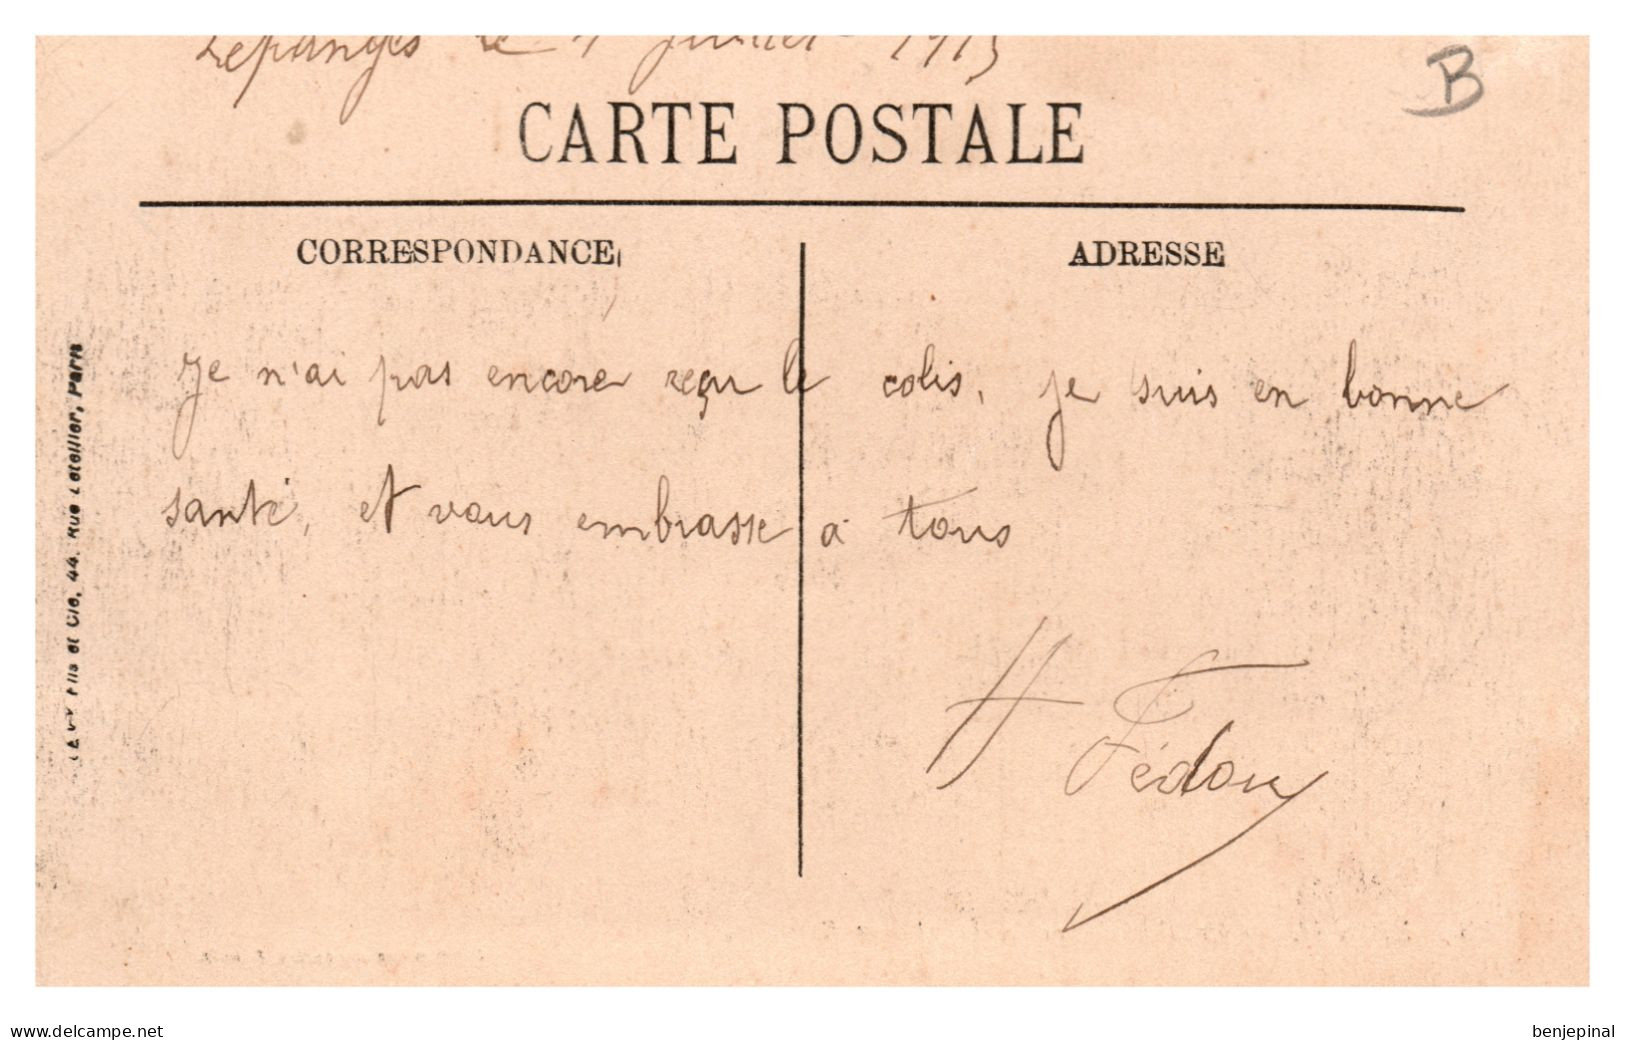 Lepanges le 1 juillet 1915
B
CARTE POSTALE
CORRESPONDANCE
ADRESSE
Je n'ai pas encore reçu le colis, je suis en bonne
santé, et vous embrasse à tous
H Fédou
LEVY Fils et Cie, 44. Rue Letellier, Paris
www.delcampe.net
benjepinal